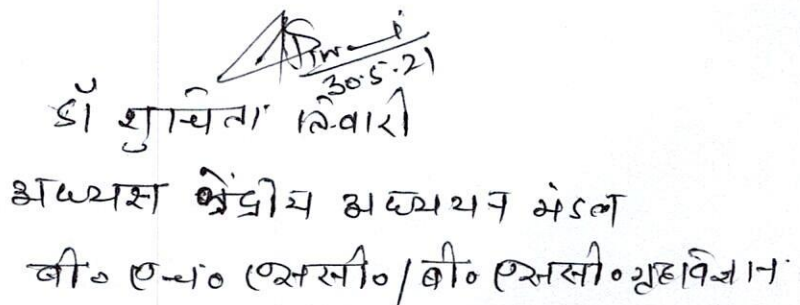 30.5.21
डॉ शुचिता तिवारी
अध्यक्ष केंद्रीय अध्ययन मंडल
बी० एच० एससी० / बी० एससी० गृहविज्ञान